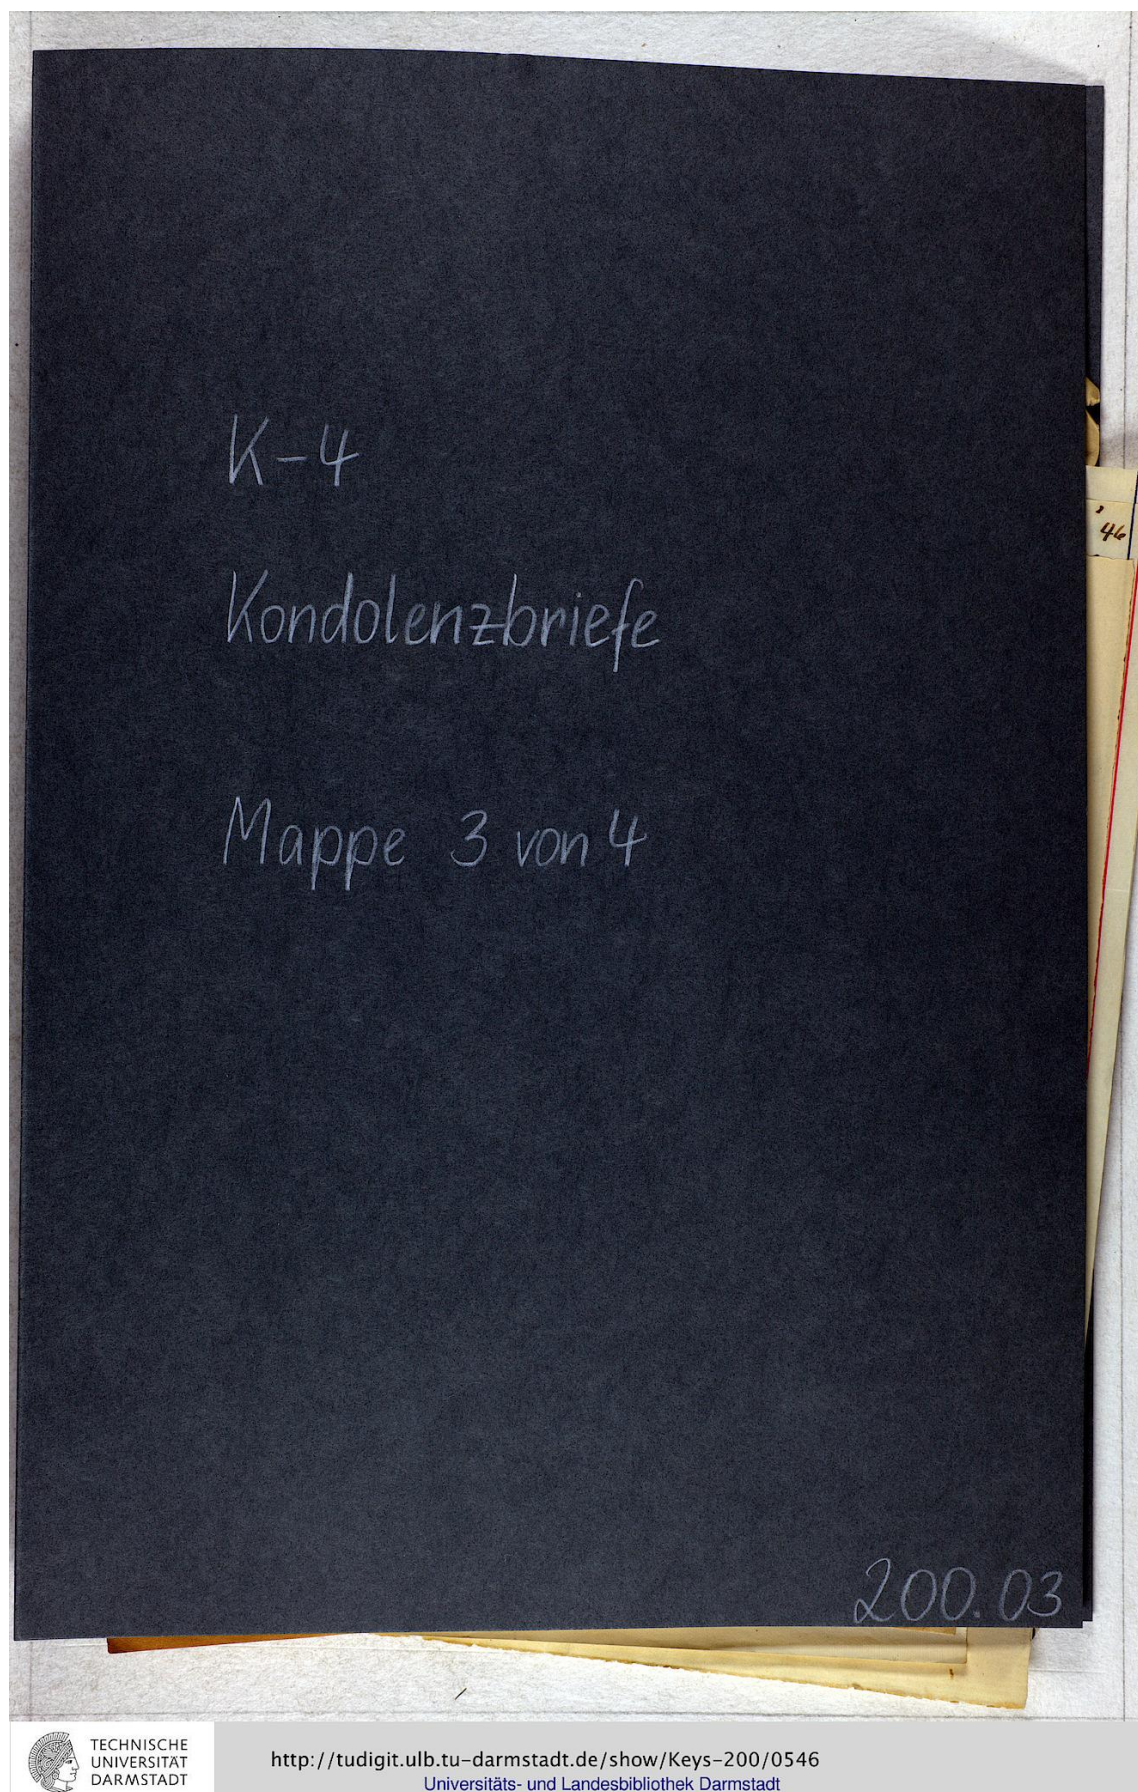 K-4
'46
Kondolenzbriefe
Mappe 3 von 4
200.03
TECHNISCHE
UNIVERSITÄT
DARMSTADT
http://tudigit.ulb.tu-darmstadt.de/show/Keys-200/0546
Universitäts- und Landesbibliothek Darmstadt